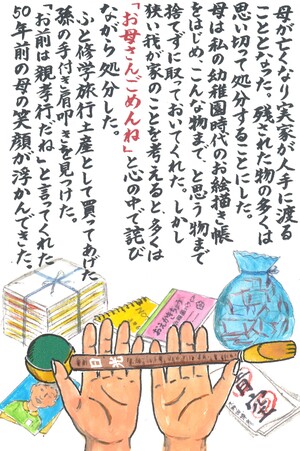 母が亡くなり実家が人手に渡る
こととなった。残された物の多くは
思い切って処分することにした。
母は私の幼稚園時代のお絵描き帳
をはじめ、こんな物まで、と思う物まで
捨てずに取っておいてくれた。しかし
狭い我が家のことを考えると、多くは
「お母さんごめんね」と心の中で詫び
ながら処分した。
ふと修学旅行土産として買ってあげた
孫の手付き肩叩きを見つけた。
「お前は親孝行だね」と言ってくれた
50年前の母の笑顔が浮かんできた。
おえかきちょう